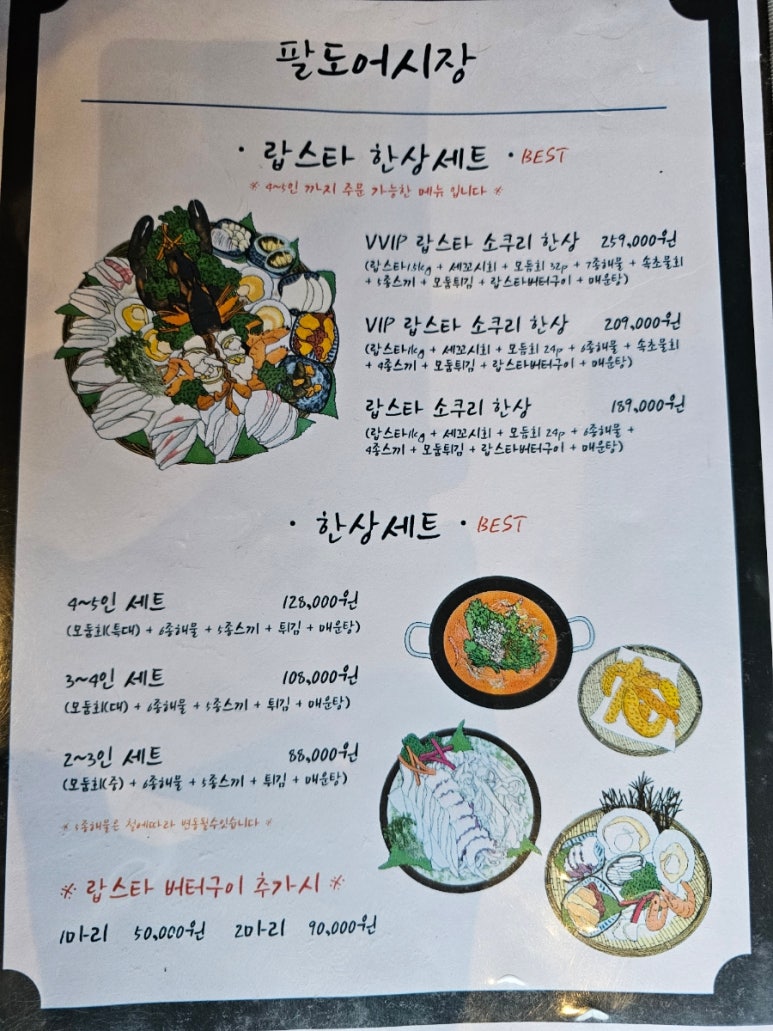 팔도어시장
· 랍스타 한상세트 · BEST
※ 4~5인 까지 주문 가능한 메뉴 입니다 ※
VVIP 랍스타 소쿠리 한상 259,000원
(랍스타1.5kg + 세꼬시회 + 모둠회 32p + 7종해물 + 속초물회
+ 5종스끼 + 모둠튀김 + 랍스타버터구이 + 매운탕)
VIP 랍스타 소쿠리 한상 209,000원
(랍스타1kg + 세꼬시회 + 모둠회 24p + 6종해물 + 속초물회
+ 4종스끼 + 모둠튀김 + 랍스타버터구이 + 매운탕)
랍스타 소쿠리 한상 189,000원
(랍스타1kg + 세꼬시회 + 모둠회 24p + 6종해물 +
4종스끼 + 모둠튀김 + 랍스타버터구이 + 매운탕)
· 한상세트 · BEST
4~5인 세트 128,000원
(모둠회(특대) + 6종해물 + 5종스끼 + 튀김 + 매운탕)
3~4인 세트 108,000원
(모둠회(대) + 6종해물 + 5종스끼 + 튀김 + 매운탕)
2~3인 세트 88,000원
(모둠회(중) + 6종해물 + 5종스끼 + 튀김 + 매운탕)
※ 5종해물은 철에따라 변동될수있습니다 ※
※ 랍스타 버터구이 추가시 ※
1마리 50,000원 2마리 90,000원